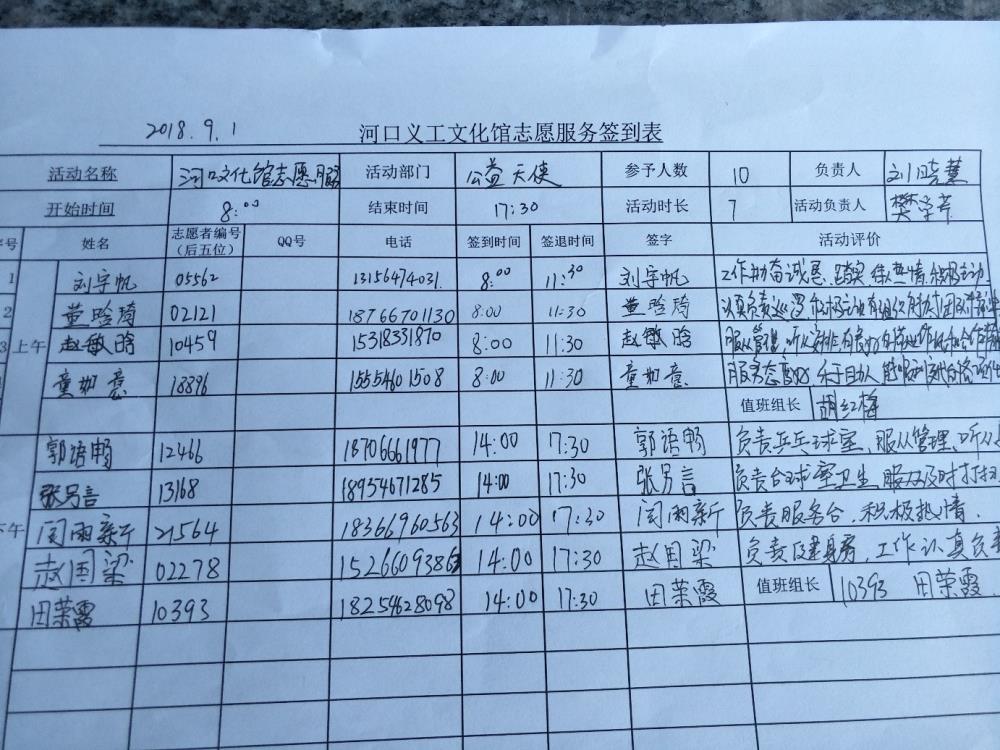 2018.9.1 河口义工文化馆志愿服务签到表
活动名称 河口文化馆志愿服 活动部门 公益天使 参予人数 10 负责人 刘晓慧
开始时间 8:00 结束时间 17:30 活动时长 7 活动负责人 樊
序号 姓名 志愿者编号（后五位） QQ号 电话 签到时间 签退时间 签字 活动评价
1 刘宇帆 05562 13156474031. 8:00 11:30 刘宇帆 工作勤奋诚恳、踏实 热情、积极主动
2 董晗琦 02121 18766701130 8:00 11:30 董晗琦 认真负责
3 赵敏晗 10459 15318331870 8:00 11:30 赵敏晗 服从管理、听从安排
上午
童如意 18896 15554601508 8:00 11:30 童如意 服务态度好、乐于助人
值班组长 胡红梅
郭语畅 12466 18706661977 14:00 17:30 郭语畅 负责乒乓球室、服从管理、听从
张另言 13168 18954671285 14:00 17:30 张另言 负责台球室卫生、服及时打扫
下午 闫雨新 21564 18366960563 14:00 17:30 闫雨新 负责服务台、积极热情.
赵国梁 02278 1526609386 14:00 17:30 赵国梁 负责健身房、工作认真负责
田荣霞 10393 18254628098 14:00 17:30 田荣霞 值班组长 10393 田荣霞